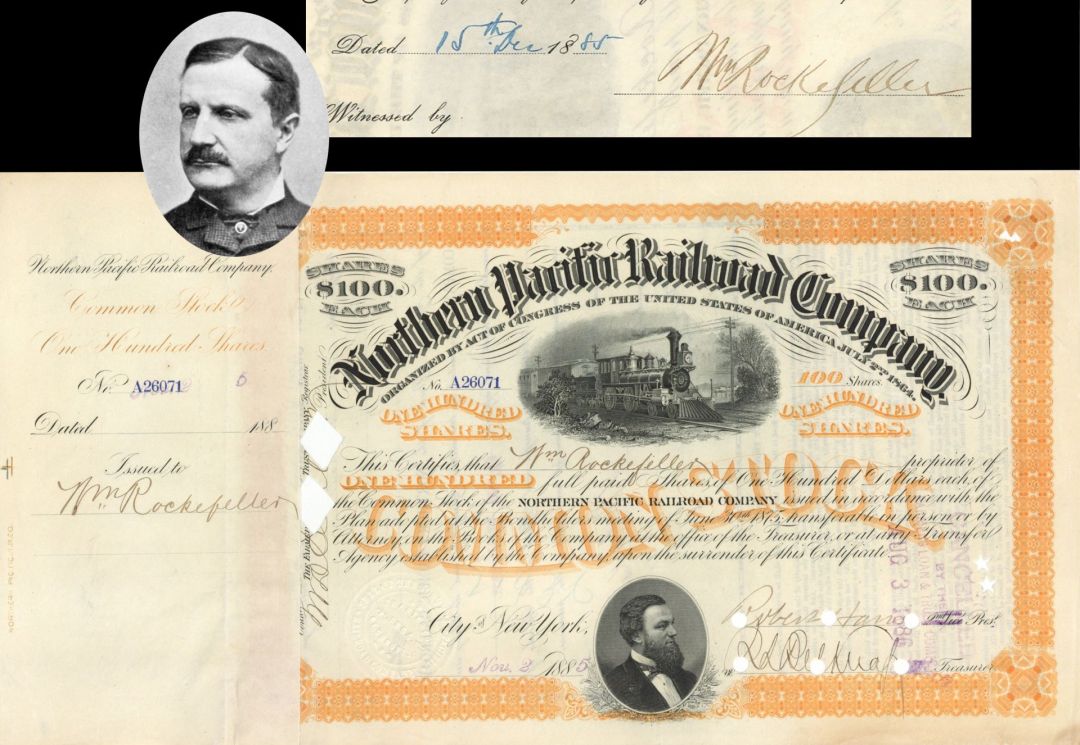 Dated 15th. Dec 1885
Wm Rockefeller
Witnessed by
Northern Pacific Railroad Company.
Common Stock
One Hundred Shares
No. A26071
Dated 188
Issued to
Wm Rockefeller
SHARES
$100.
EACH
SHARES
$100.
EACH
Northern Pacific Railroad Company,
ORGANIZED BY ACT OF CONGRESS OF THE UNITED STATES OF AMERICA JULY 2ND 1864.
No. A26071
100 Shares.
ONE HUNDRED
SHARES.
ONE HUNDRED
SHARES.
COMMON STOCK
This Certifies, that Wm Rockefeller proprietor of
ONE HUNDRED full paid Shares of One Hundred Dollars each, of
the Common Stock of the NORTHERN PACIFIC RAILROAD COMPANY issued in accordance with the
Plan adopted at the Bondholders meeting of June 30th 1875, transferable in person or by
Attorney, on the Books of the Company, at the office of the Treasurer, or at any Transfer
Agency established by the Company, upon the surrender of this Certificate
City of New York,
Nov. 2 1885
Robert Harris Prest.
Treasurer